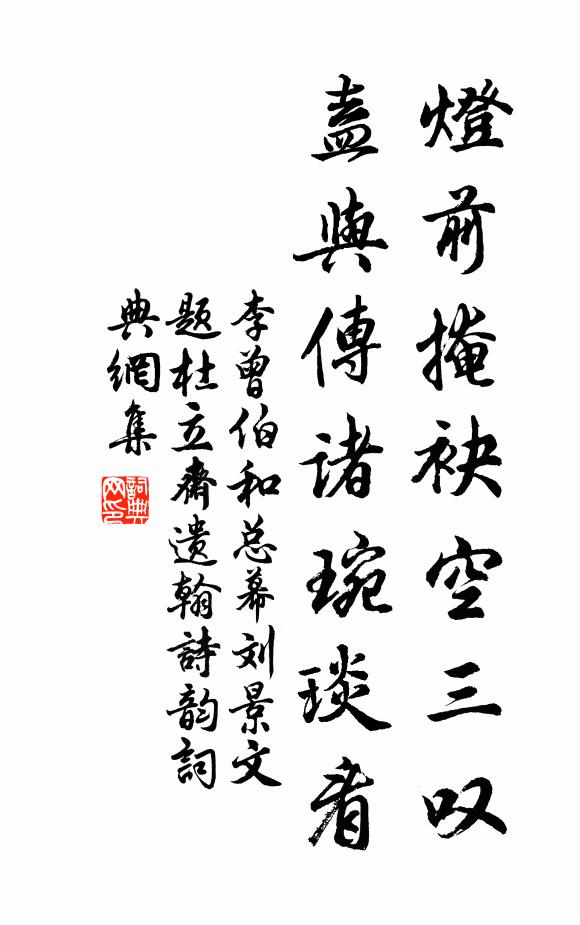 燈前掩袂空三叹
盍與傳诸琬琰看
李曾伯和总幕刘景文
题杜立齋遗翰詩韵詞
典網集
詞典网印